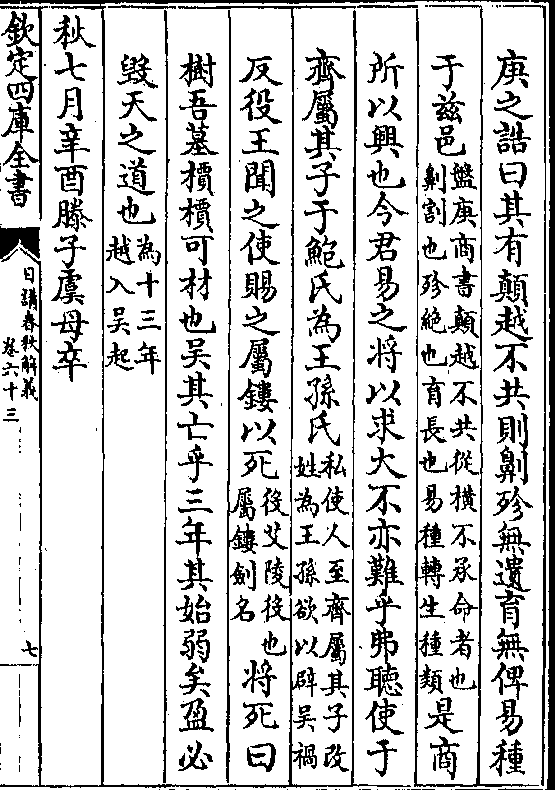 庚之誥曰其有顛越不共則劓殄無遺育無俾易種
于兹邑盤庚商書顛越不共從横不承命者也劓割也殄絶也育長也易種轉生種類是商
所以興也今君易之将以求大不亦難乎弗聽使于
齊屬其子于鮑氏為王孫氏私使人至齊屬其子改姓為王孫欲以辟吴禍
反役王聞之使賜之屬鏤以死後艾陵役也屬鏤劍名将死曰
樹吾墓檟檟可材也吴其亡乎三年其始弱矣盈必
毁天之道也為十三年越入吴起
秋七月辛酉滕子虞母卒
欽定四庫全書
日講春秋解義
卷六十三
七